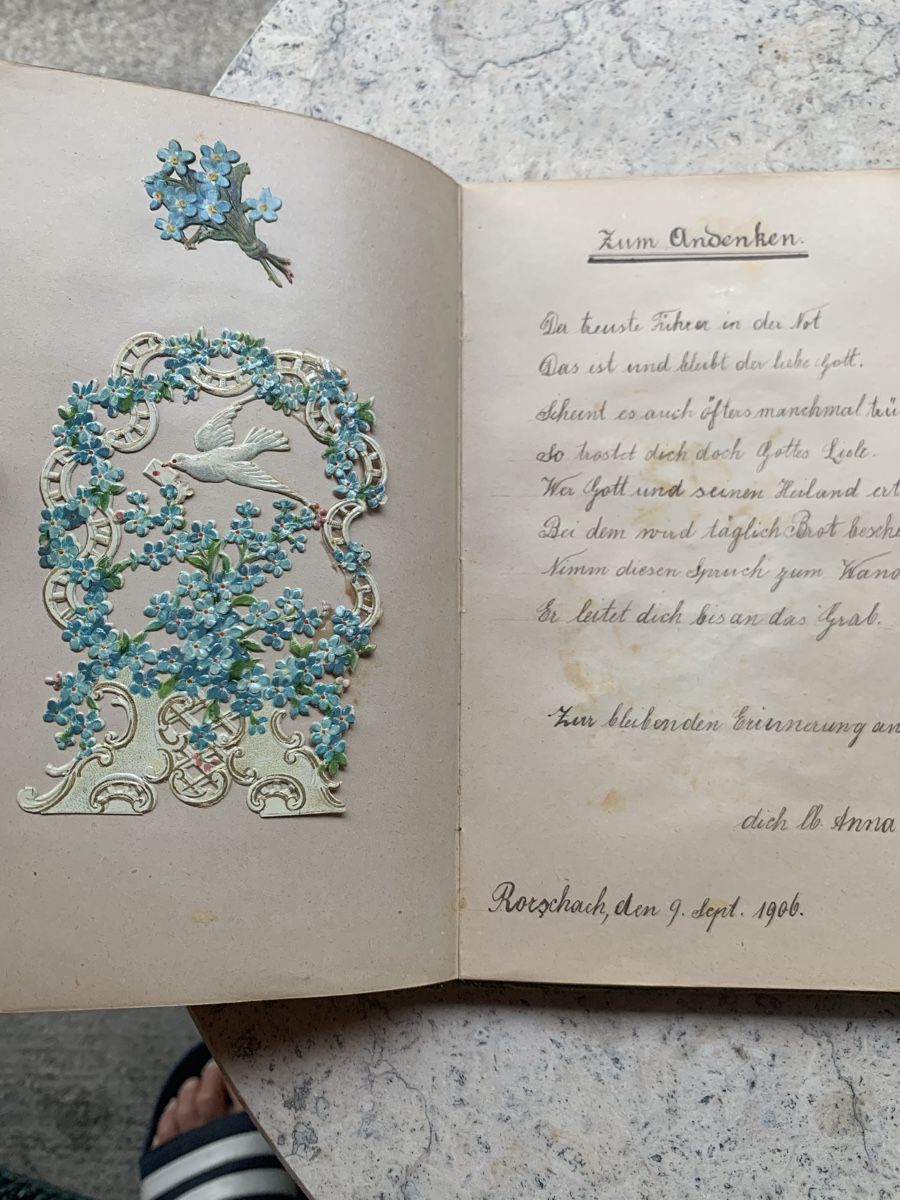 Zum Andenken.
Der treuste Führer in der Not
Das ist und bleibt der liebe Gott.
Scheint es auch öfters manchmal trü
So trostet dich doch Gottes Liebe.
Wer Gott und seinen Heiland ert
Bei dem wird täglich Brot besche
Nimm diesen Spruch zum Wand
Er leitet dich bis an das Grab.
Zur bleibenden Erinnerung an
dich lb. Anna
Rorschach, den 9. Sept. 1906.